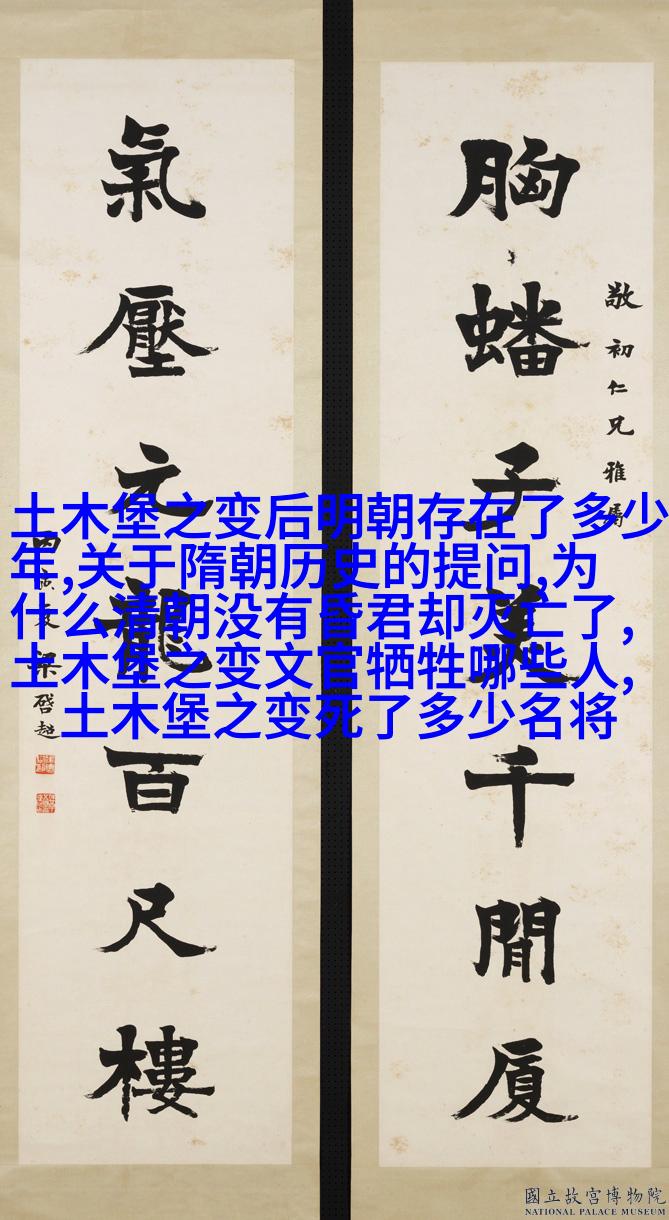 胸蟠子美千間厦
敬初仁兄雅屬
氣壓元龍百尺樓
丙寅夏梁啓超
土木堡之变后明朝存在了多少
年,关于隋朝历史的提问,为
什么清朝没有昏君却灭亡了,
土木堡之变文官牺牲哪些人,
土木堡之变死了多少名将
國立故宮博物院
NATIONAL PALACE MUSEUM